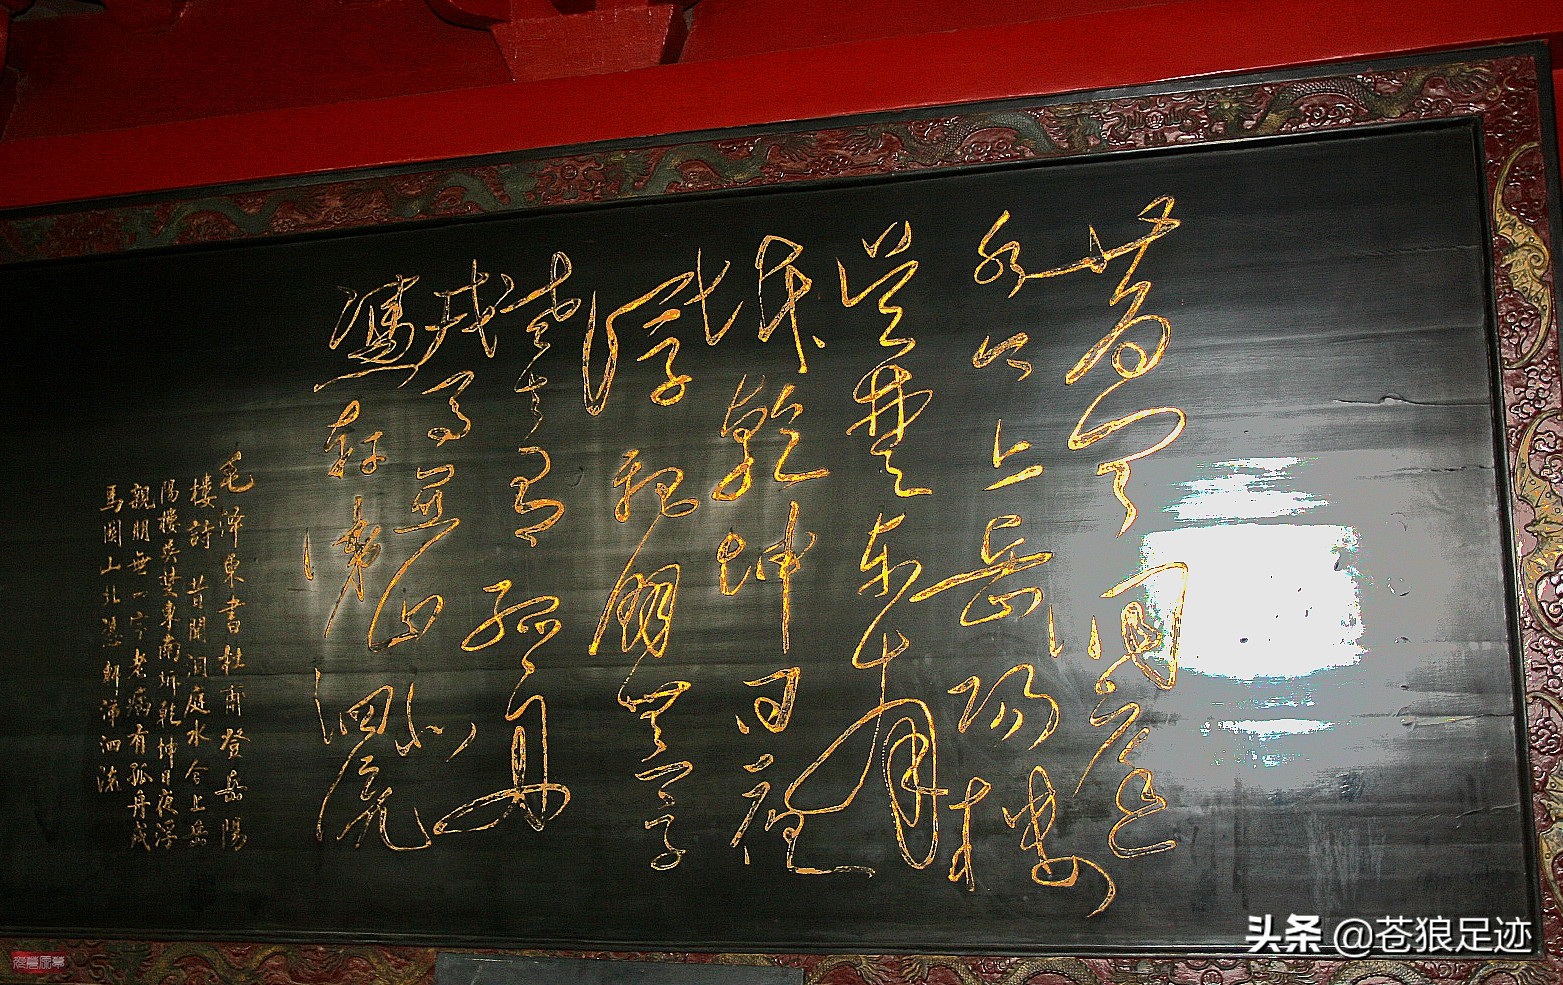 昔聞洞庭
水今上岳陽樓
吴楚东南
坼乾坤日夜
浮親朋無一字
老去有孤舟
戎馬関山北
憑軒涕泗流
毛澤東書杜甫登岳陽
樓詩 昔聞洞庭水今上岳
陽樓吳楚東南坼乾坤日夜浮
親朋無一字老病有孤舟戎
馬関山北憑軒涕泗流
头条 @苍狼足迹